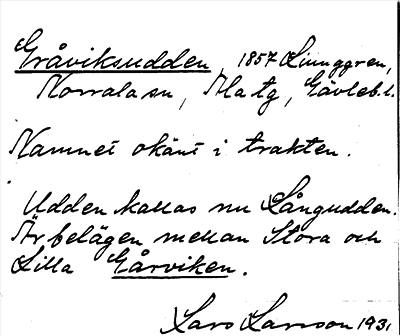 Gråviksudden, 1857 Ljunggren,
Norrala sn, Ala tg, Gävleb.l.
Namnet okänt i trakten.
Udden kallas nu Långudden.
Är belägen mellan Stora och
Lilla Gårviken.
Lars Larsson 1931